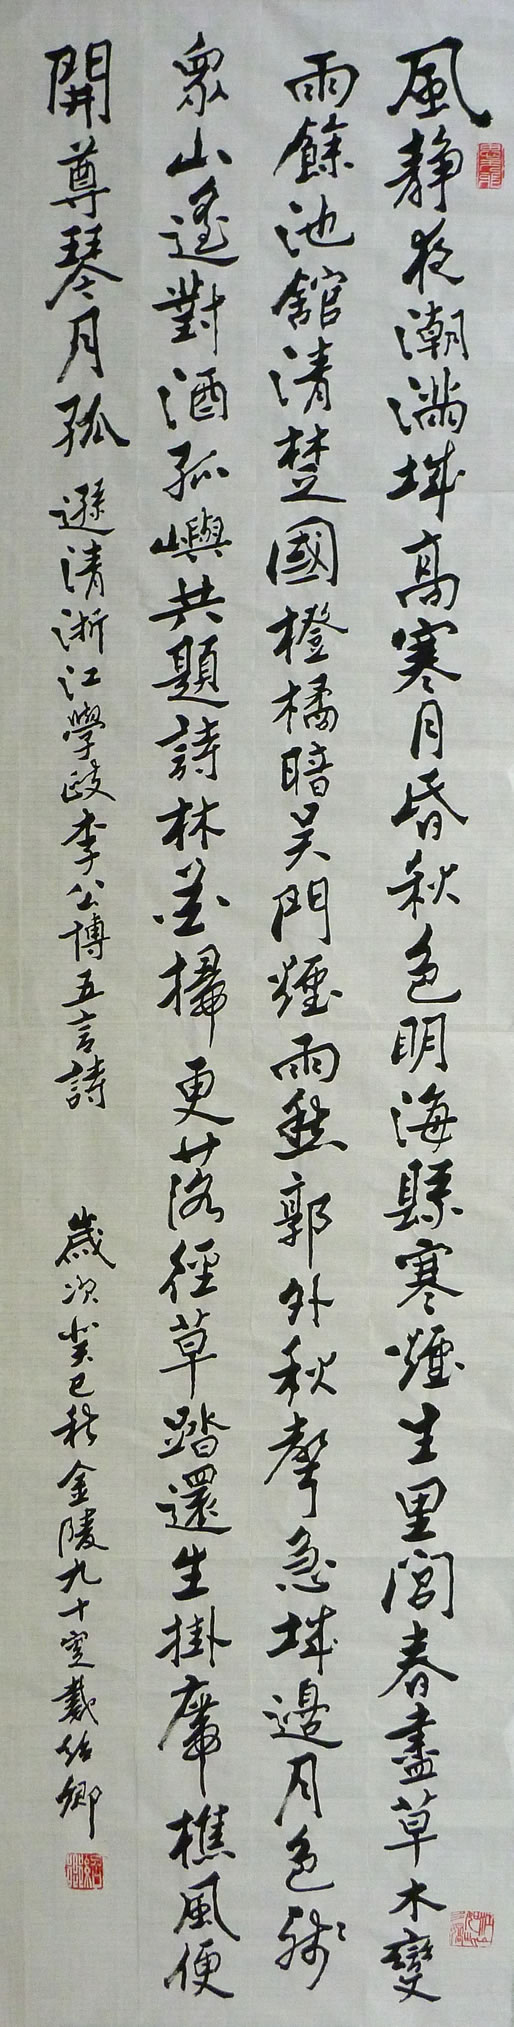 風静夜潮滿城高寒月昏秋色明海縣寒煙生里閭春盡草木變
雨餘池館清楚國橙橘暗吴門煙雨愁郭外秋聲急城邊月色殘
衆山遙對酒孤嶼共題詩林花掃更落徑草踏還生掛席樵風便
開尊琴月孤
遜清浙江學政李公博五言詩
歲次癸巳秋金陵九十叟戴紹卿